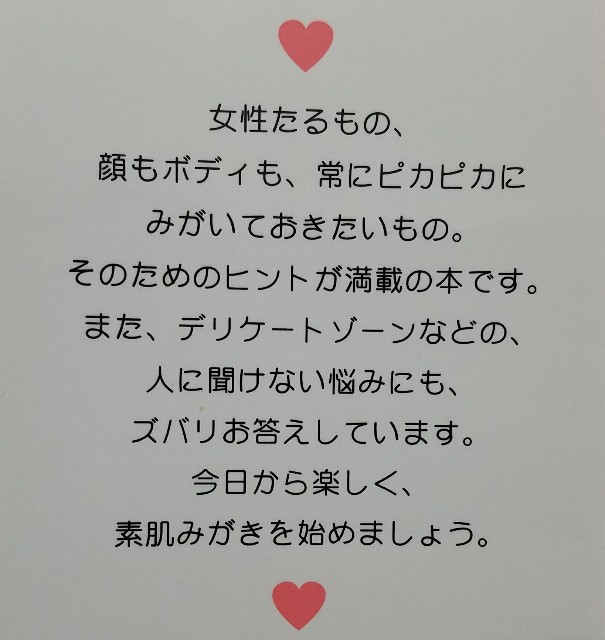 女性たるもの、
顔もボディも、常にピカピカに
みがいておきたいもの。
そのためのヒントが満載の本です。
また、デリケートゾーンなどの、
人に聞けない悩みにも、
ズバリお答えしています。
今日から楽しく、
素肌みがきを始めましょう。